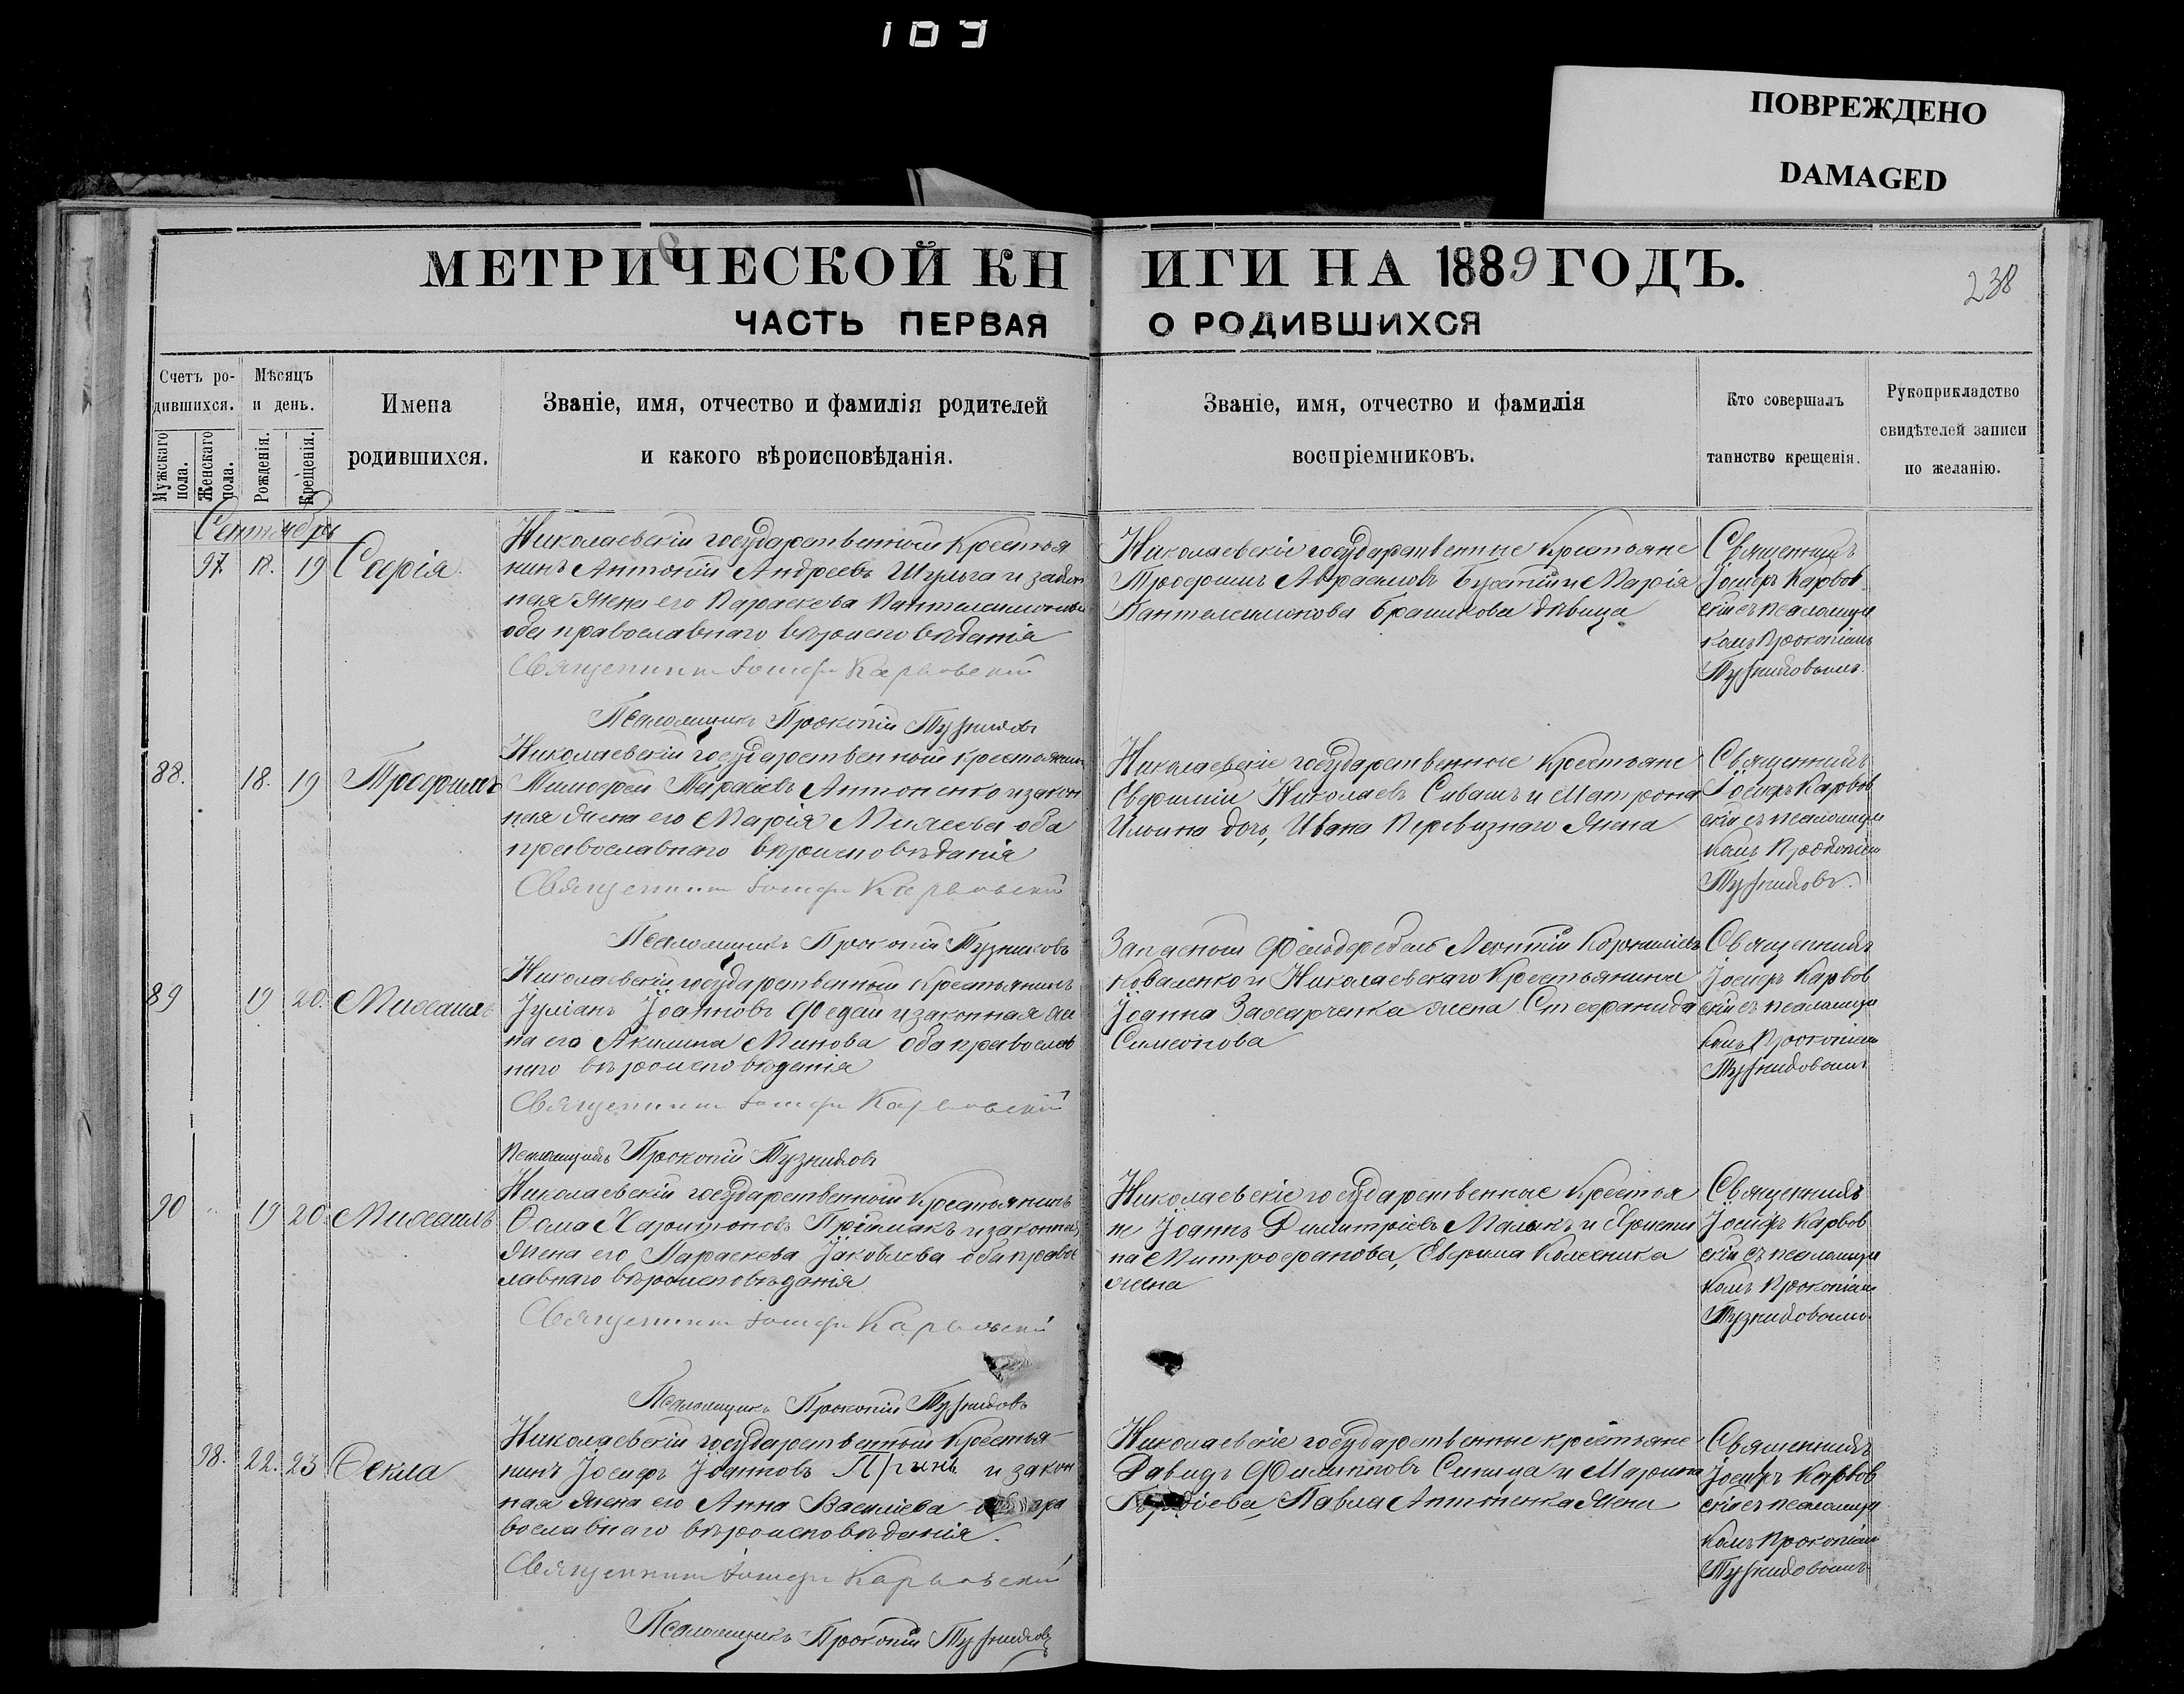 109
ПОВРЕЖДЕНО
DAMAGED
МЕТРИЧЕСКОЙ КНИГИ НА 1889 ГОДЪ.
238
ЧАСТЬ ПЕРВАЯ О РОДИВШИХСЯ
Счетъ ро-
дившихся.
Мужскаго пола.
Женскаго пола.
Мѣсяцъ
и день.
Рожденія.
Крещенія.
Имена
родившихся.
Званіе, имя, отчество и фамилія родителей
и какого вѣроисповѣданія.
Званіе, имя, отчество и фамилія
воспріемниковъ.
Кто совершалъ
таинство крещенія.
Рукоприкладство
свидѣтелей записи
по желанію.
Сентябрь
97. 18. 19 Софія
Николаевскій государственный крестья
нинъ Антоній Андреевъ Шульга и закон
ная жена его Параскева
оба православнаго вѣроисповѣданія
Священникъ Іосифъ Карвовскій
Псаломщикъ Прокопій Тузниковъ
Николаевскіе государственные крестьяне
Трофимъ Аврамовъ и Марія
Пантелеимонова дѣвица
Священникъ
Іосифъ Карвов
скій съ псаломщи
комъ Прокопіемъ
Тузниковымъ.
88. 18. 19 Трофимъ
Николаевскій государственный крестьянинъ
Тимофей Тарасіевъ Антоненко и закон
ная жена его Марія оба
православнаго вѣроисповѣданія
Священникъ Іосифъ Карвовскій
Псаломщикъ Прокопій Тузниковъ
Николаевскіе государственные крестьяне
Евфимій Николаевъ Сивашъ и Матрона
Ильина дочь, Ивана Перевизнаго жена
Священникъ
Іосифъ Карвов
скій съ псаломщи
комъ Прокопіем
Тузниковъ.
89 19 20. Михаилъ
Николаевскій государственный крестьянинъ
Іуліанъ Іоанновъ Федей и законная же
на его Акилина Минова оба православ
наго вѣроисповѣданія
Священникъ Іосифъ Карвовскій
Псаломщикъ Прокопій Тузниковъ
Запасный Фельдфебель Леонтій Корниліевъ
Коваленко и Николаевскаго крестьянина
Іоанна Захарченка жена Стефанида
Симеонова
Священникъ
Іосифъ Карвов
скій съ псаломщи
комъ Прокопіем
Тузниковымъ
90 19 20. Михаилъ
Николаевскій государственный крестьянинъ
Ѳома Харитоновъ Пріймакъ и законная
жена его Параскева Іаковлева оба право
славнаго вѣроисповѣданія
Священникъ Іосифъ Карвовскій
Псаломщикъ Прокопій Тузниковъ
Николаевскіе государственные крестья
не Іоаннъ Димитріевъ и Христи
на Митрофанова, Евфима Колесника
жена
Священникъ
Іосифъ Карвов
скій съ псаломщи
комъ Прокопіем
Тузниковымъ.
98. 22. 23 Ѳекла
Николаевскій государственный крестья
нинъ Іосифъ Іоанновъ и закон
ная жена его Анна Василіева оба пра
вославнаго вѣроисповѣданія.
Священникъ Іосифъ Карвовскій
Псаломщикъ Прокопій Тузниковъ
Николаевскіе государственные крестьяне
Давидъ Филипповъ Синица и Марина
Павла Антоненка жена
Священникъ
Іосифъ Карвов
скій съ псаломщи
комъ Прокопіем
Тузниковымъ